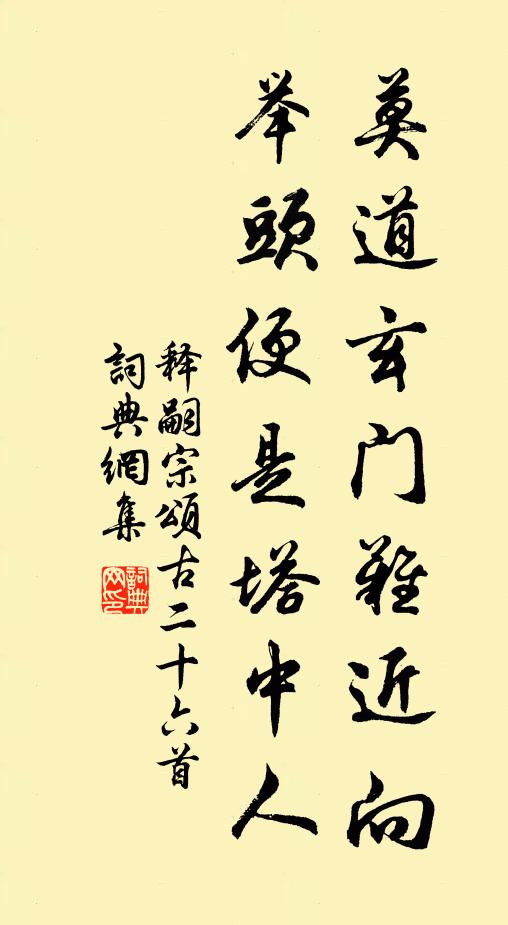 莫道玄门難近向
举頭便是塔中人
释嗣宗頌古二十六首
詞典網集
詞典网印